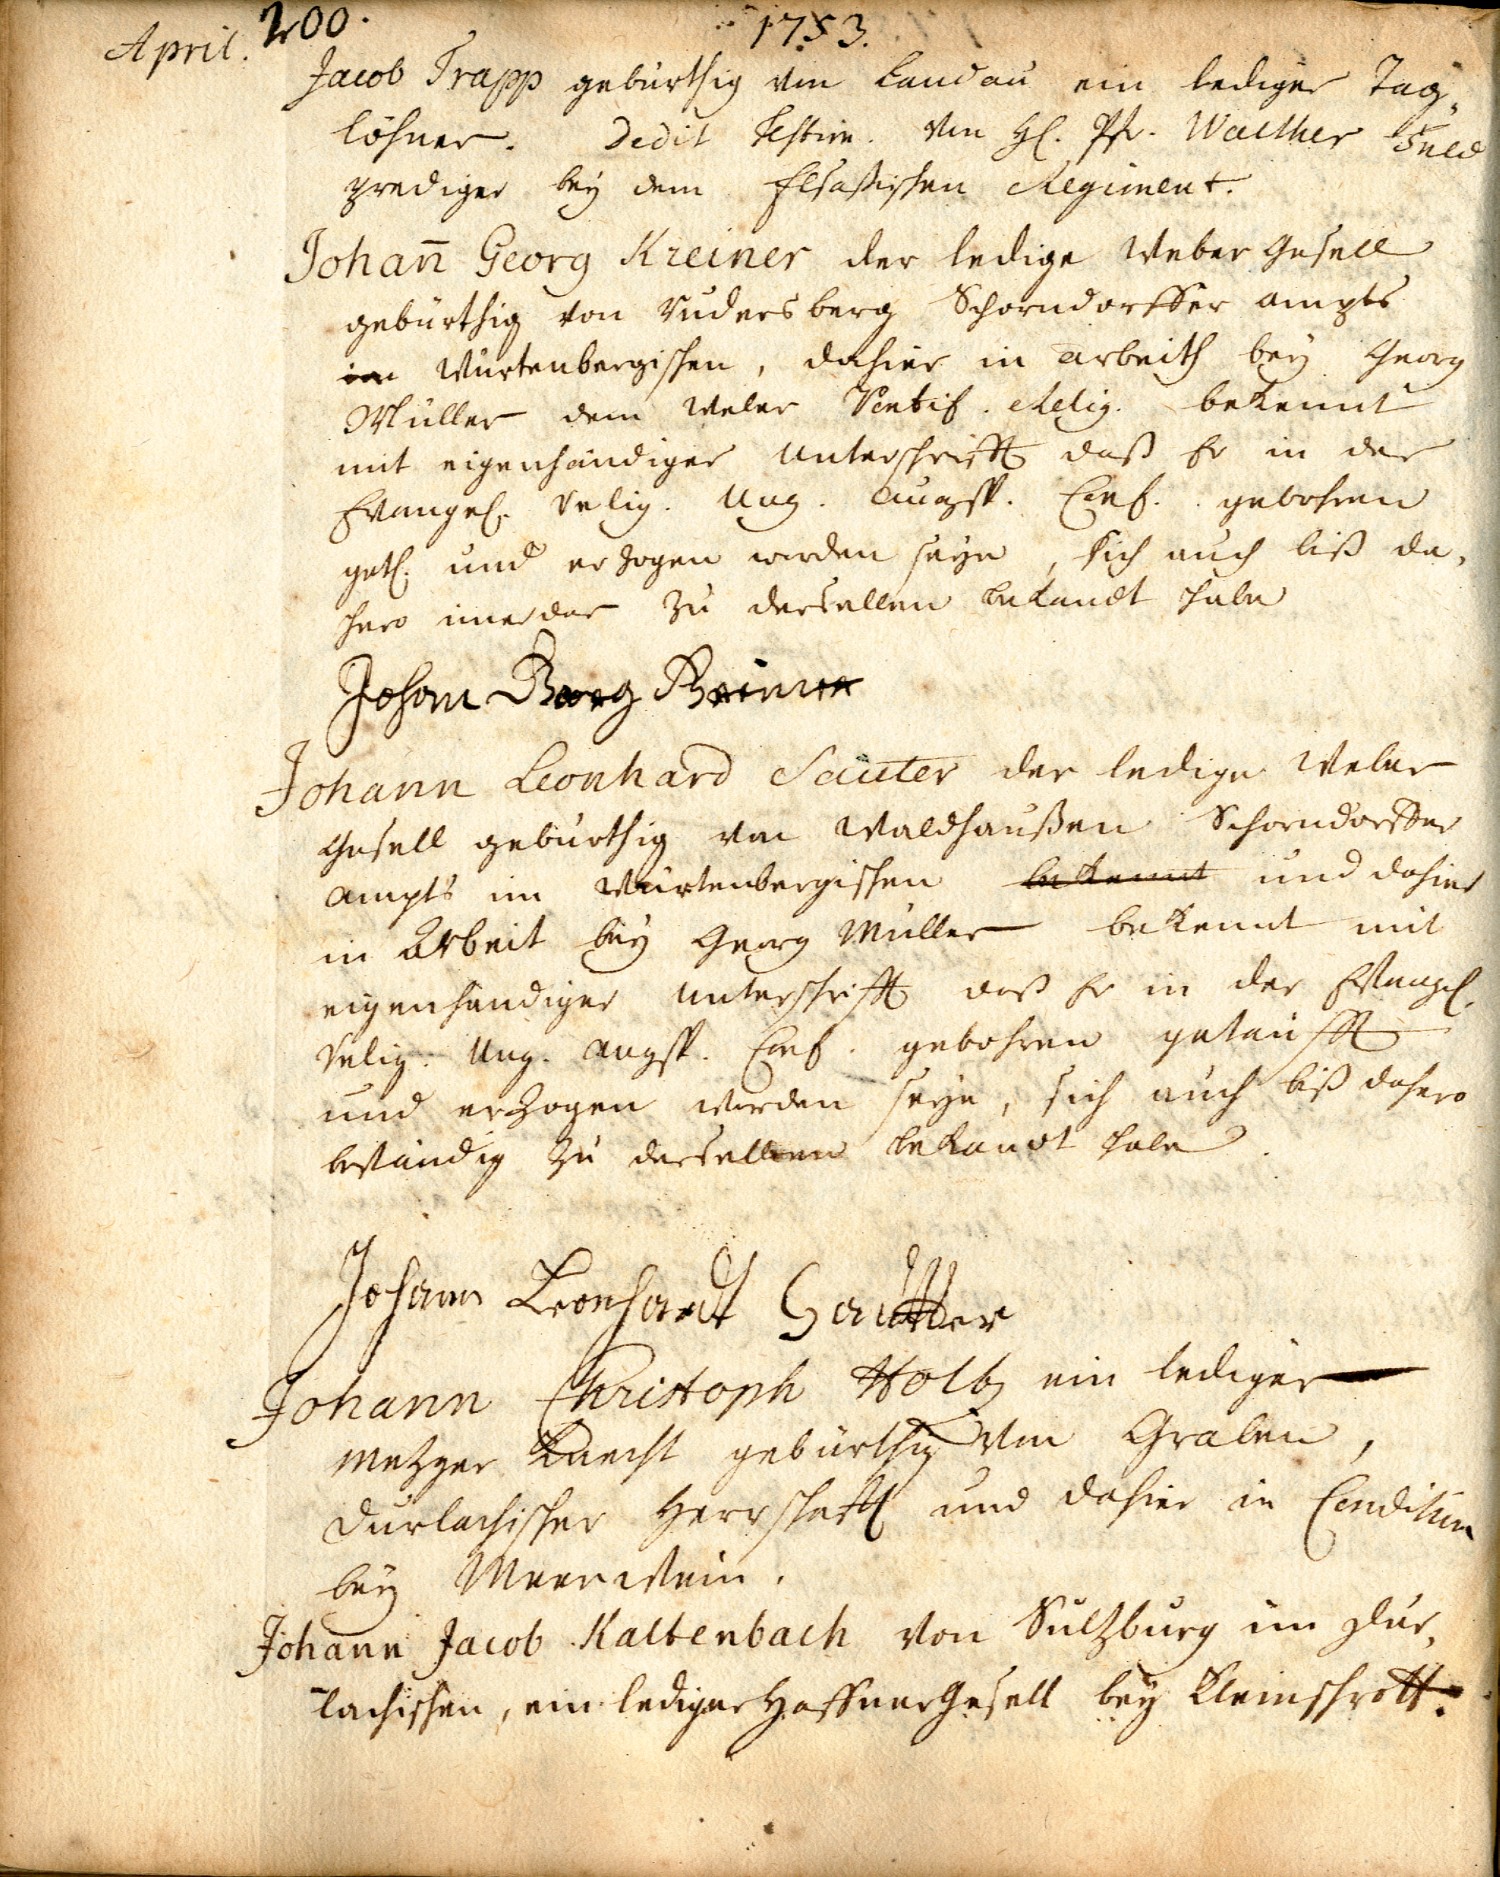 200.
1753.
April.
Jacob Trapp gebürthig von Landau ein lediger Tag„
löhner. Dedit testim. von H. Pfr. Walther Feld
prediger bey dem Elsaßischen Regiment.
Johan̄ Georg Kreiner der ledige Weber Gesell
gebürthig von Rudersberg Schorndorffer ampts
im Würtenbergischen, dahier in arbeith bey Georg
Müller dem Weber Relig. bekennt
mit eigenhändiger Unterschrifft daß Er in der
Evangel. Relig. Ung. augsp. Conf. gebohren
get. und erzogen worden seye, sich auch biß da„
hero imerdar zu derselben bekandt habe
Johann Georg Kreiner
Johann Leonhard Sauter der ledige Weber
Gesell gebürthig von Waldhaußen Schorndorffer
ampts im Würtenbergischen bekennt und dahier
in Arbeit bey Georg Müller bekennt mit
eigenhändiger Unterschrifft daß Er in der Evangel.
Relig. Ung. augsp. Conf. gebohren getaufft
und erzogen worden seye, sich auch biß dahero
beständig zu derselben bekandt habe.
Johann Leonhardt Sautter
Johann Christoph Holtz ein lediger
Metzger Knecht gebürthig von Graben,
Durlachischer Herrschafft und dahier in Condition
bey Meerwein.
Johann Jacob Kaltenbach von Sultzburg im Dur„
lachischen, ein lediger Haffner Gesell bey Kleinschrott.